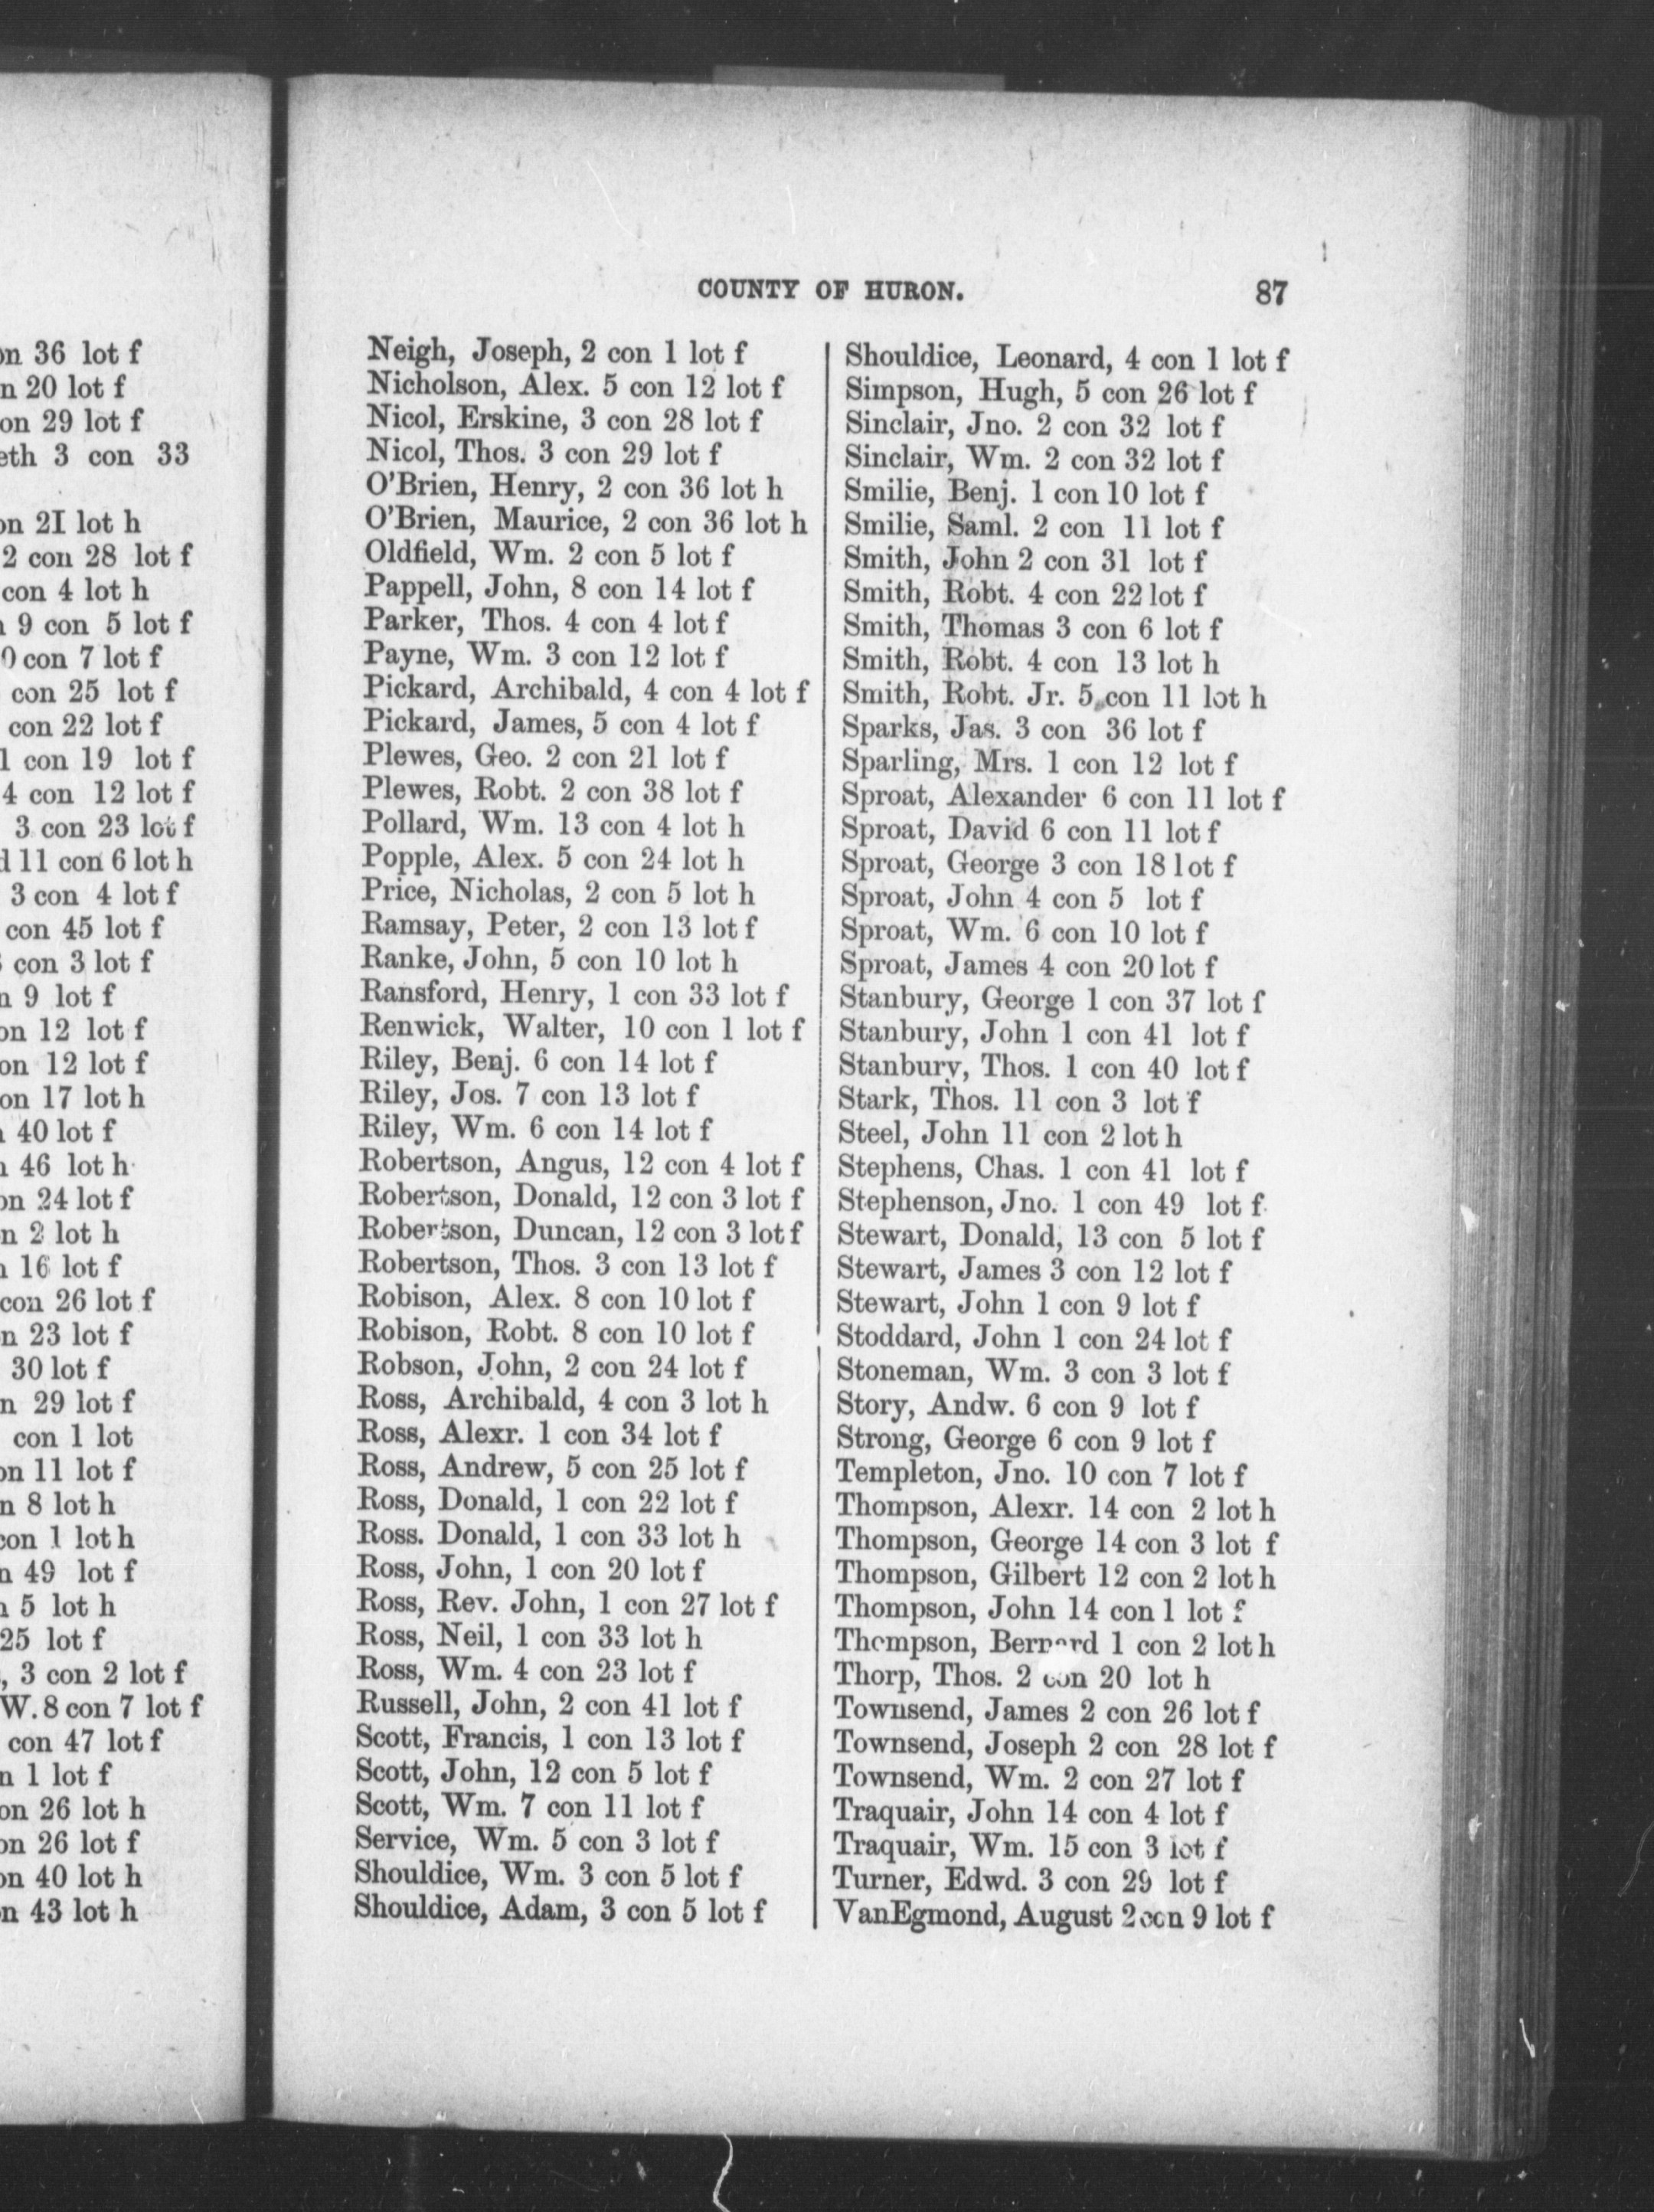 on 36 lot f
n 20 lot f
on 29 lot f
eth 3 con 33
on 21 lot h
2 con 28 lot f
con 4 lot h
9 con 5 lot f
0 con 7 lot f
con 25 lot f
con 22 lot f
1 con 19 lot f
4 con 12 lot f
3 con 23 lot f
d 11 con 6 lot h
3 con 4 lot f
con 45 lot f
con 3 lot f
n 9 lot f
on 12 lot f
on 12 lot f
on 17 lot h
40 lot f
46 lot h
on 24 lot f
n 2 lot h
16 lot f
con 26 lot f
n 23 lot f
30 lot f
n 29 lot f
con 1 lot
on 11 lot f
n 8 lot h
con 1 lot h
n 49 lot f
5 lot h
25 lot f
, 3 con 2 lot f
W. 8 con 7 lot f
con 47 lot f
n 1 lot f
on 26 lot h
on 26 lot f
on 40 lot h
n 43 lot h
COUNTY OF HURON. 87
Neigh, Joseph, 2 con 1 lot f
Nicholson, Alex. 5 con 12 lot f
Nicol, Erskine, 3 con 28 lot f
Nicol, Thos. 3 con 29 lot f
O'Brien, Henry, 2 con 36 lot h
O'Brien, Maurice, 2 con 36 lot h
Oldfield, Wm. 2 con 5 lot f
Pappell, John, 8 con 14 lot f
Parker, Thos. 4 con 4 lot f
Payne, Wm. 3 con 12 lot f
Pickard, Archibald, 4 con 4 lot f
Pickard, James, 5 con 4 lot f
Plewes, Geo. 2 con 21 lot f
Plewes, Robt. 2 con 38 lot f
Pollard, Wm. 13 con 4 lot h
Popple, Alex. 5 con 24 lot h
Price, Nicholas, 2 con 5 lot h
Ramsay, Peter, 2 con 13 lot f
Ranke, John, 5 con 10 lot h
Ransford, Henry, 1 con 33 lot f
Renwick, Walter, 10 con 1 lot f
Riley, Benj. 6 con 14 lot f
Riley, Jos. 7 con 13 lot f
Riley, Wm. 6 con 14 lot f
Robertson, Angus, 12 con 4 lot f
Robertson, Donald, 12 con 3 lot f
Robertson, Duncan, 12 con 3 lot f
Robertson, Thos. 3 con 13 lot f
Robison, Alex. 8 con 10 lot f
Robison, Robt. 8 con 10 lot f
Robson, John, 2 con 24 lot f
Ross, Archibald, 4 con 3 lot h
Ross, Alexr. 1 con 34 lot f
Ross, Andrew, 5 con 25 lot f
Ross, Donald, 1 con 22 lot f
Ross. Donald, 1 con 33 lot h
Ross, John, 1 con 20 lot f
Ross, Rev. John, 1 con 27 lot f
Ross, Neil, 1 con 33 lot h
Ross, Wm. 4 con 23 lot f
Russell, John, 2 con 41 lot f
Scott, Francis, 1 con 13 lot f
Scott, John, 12 con 5 lot f
Scott, Wm. 7 con 11 lot f
Service, Wm. 5 con 3 lot f
Shouldice, Wm. 3 con 5 lot f
Shouldice, Adam, 3 con 5 lot f
Shouldice, Leonard, 4 con 1 lot f
Simpson, Hugh, 5 con 26 lot f
Sinclair, Jno. 2 con 32 lot f
Sinclair, Wm. 2 con 32 lot f
Smilie, Benj. 1 con 10 lot f
Smilie, Saml. 2 con 11 lot f
Smith, John 2 con 31 lot f
Smith, Robt. 4 con 22 lot f
Smith, Thomas 3 con 6 lot f
Smith, Robt. 4 con 13 lot h
Smith, Robt. Jr. 5 con 11 lot h
Sparks, Jas. 3 con 36 lot f
Sparling, Mrs. 1 con 12 lot f
Sproat, Alexander 6 con 11 lot f
Sproat, David 6 con 11 lot f
Sproat, George 3 con 18 lot f
Sproat, John 4 con 5 lot f
Sproat, Wm. 6 con 10 lot f
Sproat, James 4 con 20 lot f
Stanbury, George 1 con 37 lot f
Stanbury, John 1 con 41 lot f
Stanbury, Thos. 1 con 40 lot f
Stark, Thos. 11 con 3 lot f
Steel, John 11 con 2 lot h
Stephens, Chas. 1 con 41 lot f
Stephenson, Jno. 1 con 49 lot f
Stewart, Donald, 13 con 5 lot f
Stewart, James 3 con 12 lot f
Stewart, John 1 con 9 lot f
Stoddard, John 1 con 24 lot f
Stoneman, Wm. 3 con 3 lot f
Story, Andw. 6 con 9 lot f
Strong, George 6 con 9 lot f
Templeton, Jno. 10 con 7 lot f
Thompson, Alexr. 14 con 2 lot h
Thompson, George 14 con 3 lot f
Thompson, Gilbert 12 con 2 lot h
Thompson, John 14 con 1 lot f
Thompson, Bernard 1 con 2 lot h
Thorp, Thos. 2 con 20 lot h
Townsend, James 2 con 26 lot f
Townsend, Joseph 2 con 28 lot f
Townsend, Wm. 2 con 27 lot f
Traquair, John 14 con 4 lot f
Traquair, Wm. 15 con 3 lot f
Turner, Edwd. 3 con 29 lot f
VanEgmond, August 2 con 9 lot f